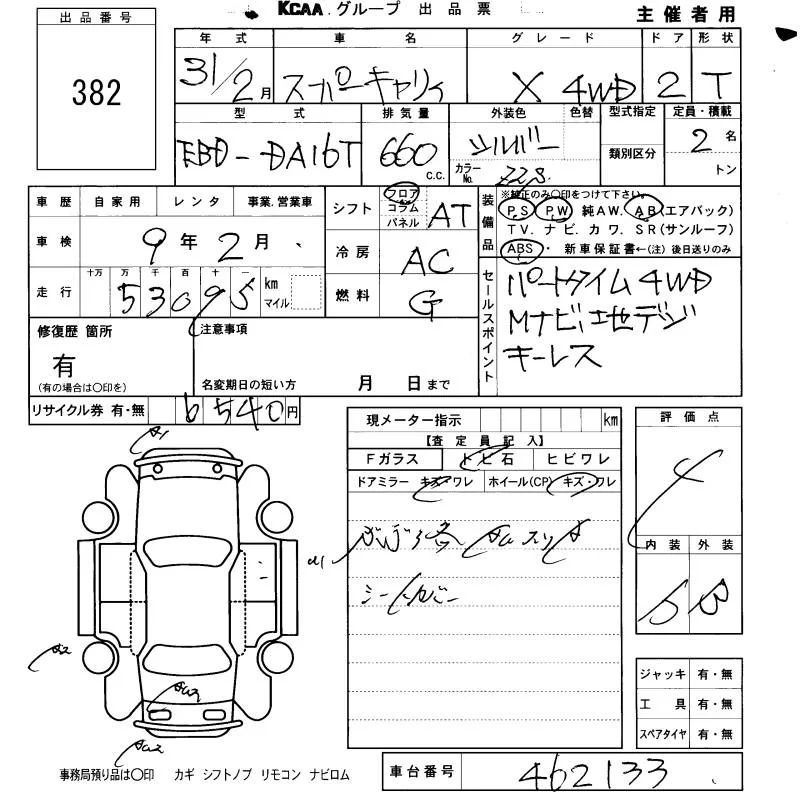 KCAA グループ 出品票
主催者用
出品番号
382
年式 車名 グレード ドア 形状
31/2月 スーパーキャリイ X 4WD 2 T
型式 排気量 外装色 色替 型式指定 定員・積載
EBD-DA16T 660 c.c. シルバー カラーNo. ZZS 類別区分 2名 トン
車歴 自家用 レンタ 事業.営業車
車検 9年2月
走行 十万 万 千 百 十 一 km マイル
53095
シフト フロア コラム パネル AT
冷房 AC
燃料 G
装備品 ※純正のみ〇印をつけて下さい。
PS PW 純AW. AB(エアバック)
TV. ナビ. カワ. SR(サンルーフ)
ABS・ 新車保証書←(注) 後日送りのみ
セールスポイント
パートタイム4WD
Mナビ
キーレス
修復歴 箇所
有
(有の場合は〇印を)
注意事項
名変期日の短い方 月 日まで
リサイクル券 有・無 6540円
現メーター指示 km
【査定員記入】
Fガラス トビ石 ヒビワレ
ドアミラー キズ・ワレ ホイール(CP) キズ・ワレ
シートカバー
評価点
4
内装 外装
B
ジャッキ 有・無
工具 有・無
スペアタイヤ 有・無
A1
A2
事務局預り品は〇印 カギ シフトノブ リモコン ナビロム
車台番号 462133